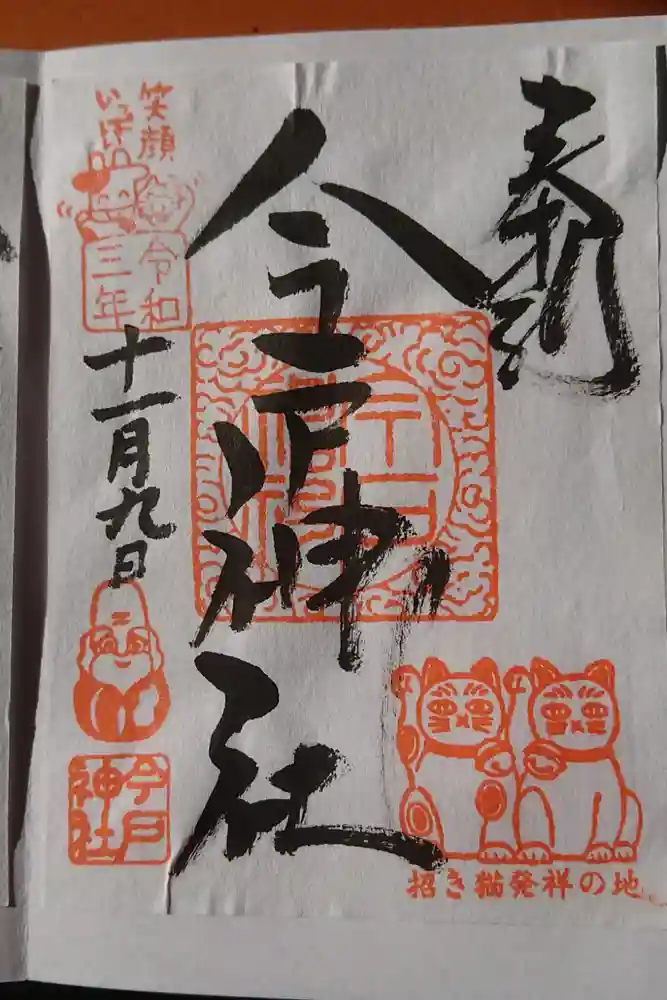 奉拝
今戸神社
笑顔
いっぱい
令和
三年
十一月九日
今戸
神社
招き猫発祥の地